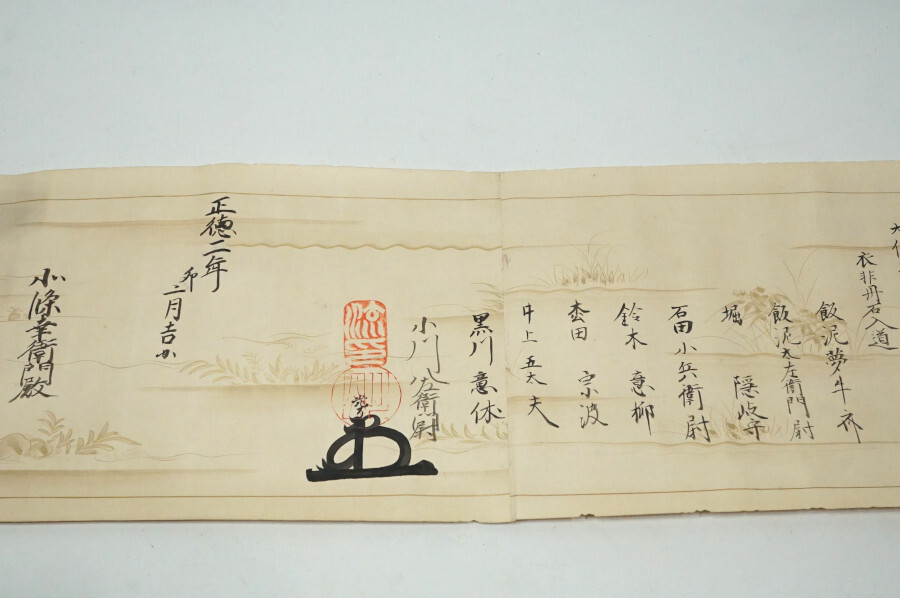 衣非丹石入道
飯泥夢牛斎
飯泥太左衛門尉
堀 隠岐守
石田小兵衛尉
鈴木 意柳
杢田 宗波
井上 五太夫
黒川意休
小川 八左衛尉
正徳二年
二月吉日
小條幸衛門殿